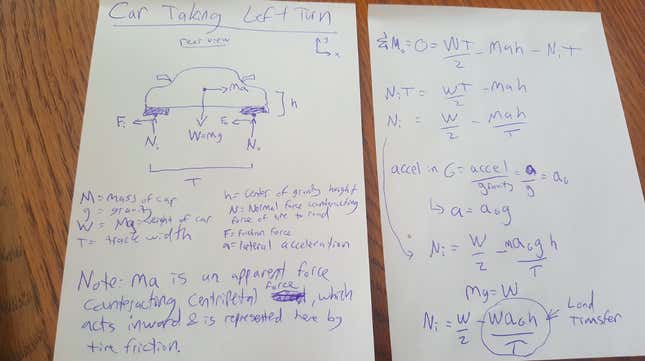 Car Taking Left Turn
rear view
y
x
ma
h
Fi
Fo
Ni
W=mg
No
T
M= mass of car
g = gravity
W = Mg = weight of car
T = track width
h= center of gravity height
N= Normal force counteracting
force of tire to road
F= friction force
a= lateral acceleration
Note: Ma is an apparent force
counteracting centripetal force, which
acts inward & is represented here by
tire friction.
ΣMo=0= WT/2 - mah - NiT
NiT= WT/2 - mah
Ni = W/2 - mah/T
accel in G= accel/gravity = a/g = aG
↳ a= aGg
Ni= W/2 - maGgh/T
Mg=W
Ni= W/2 - WaGh/T ← Load
Transfer